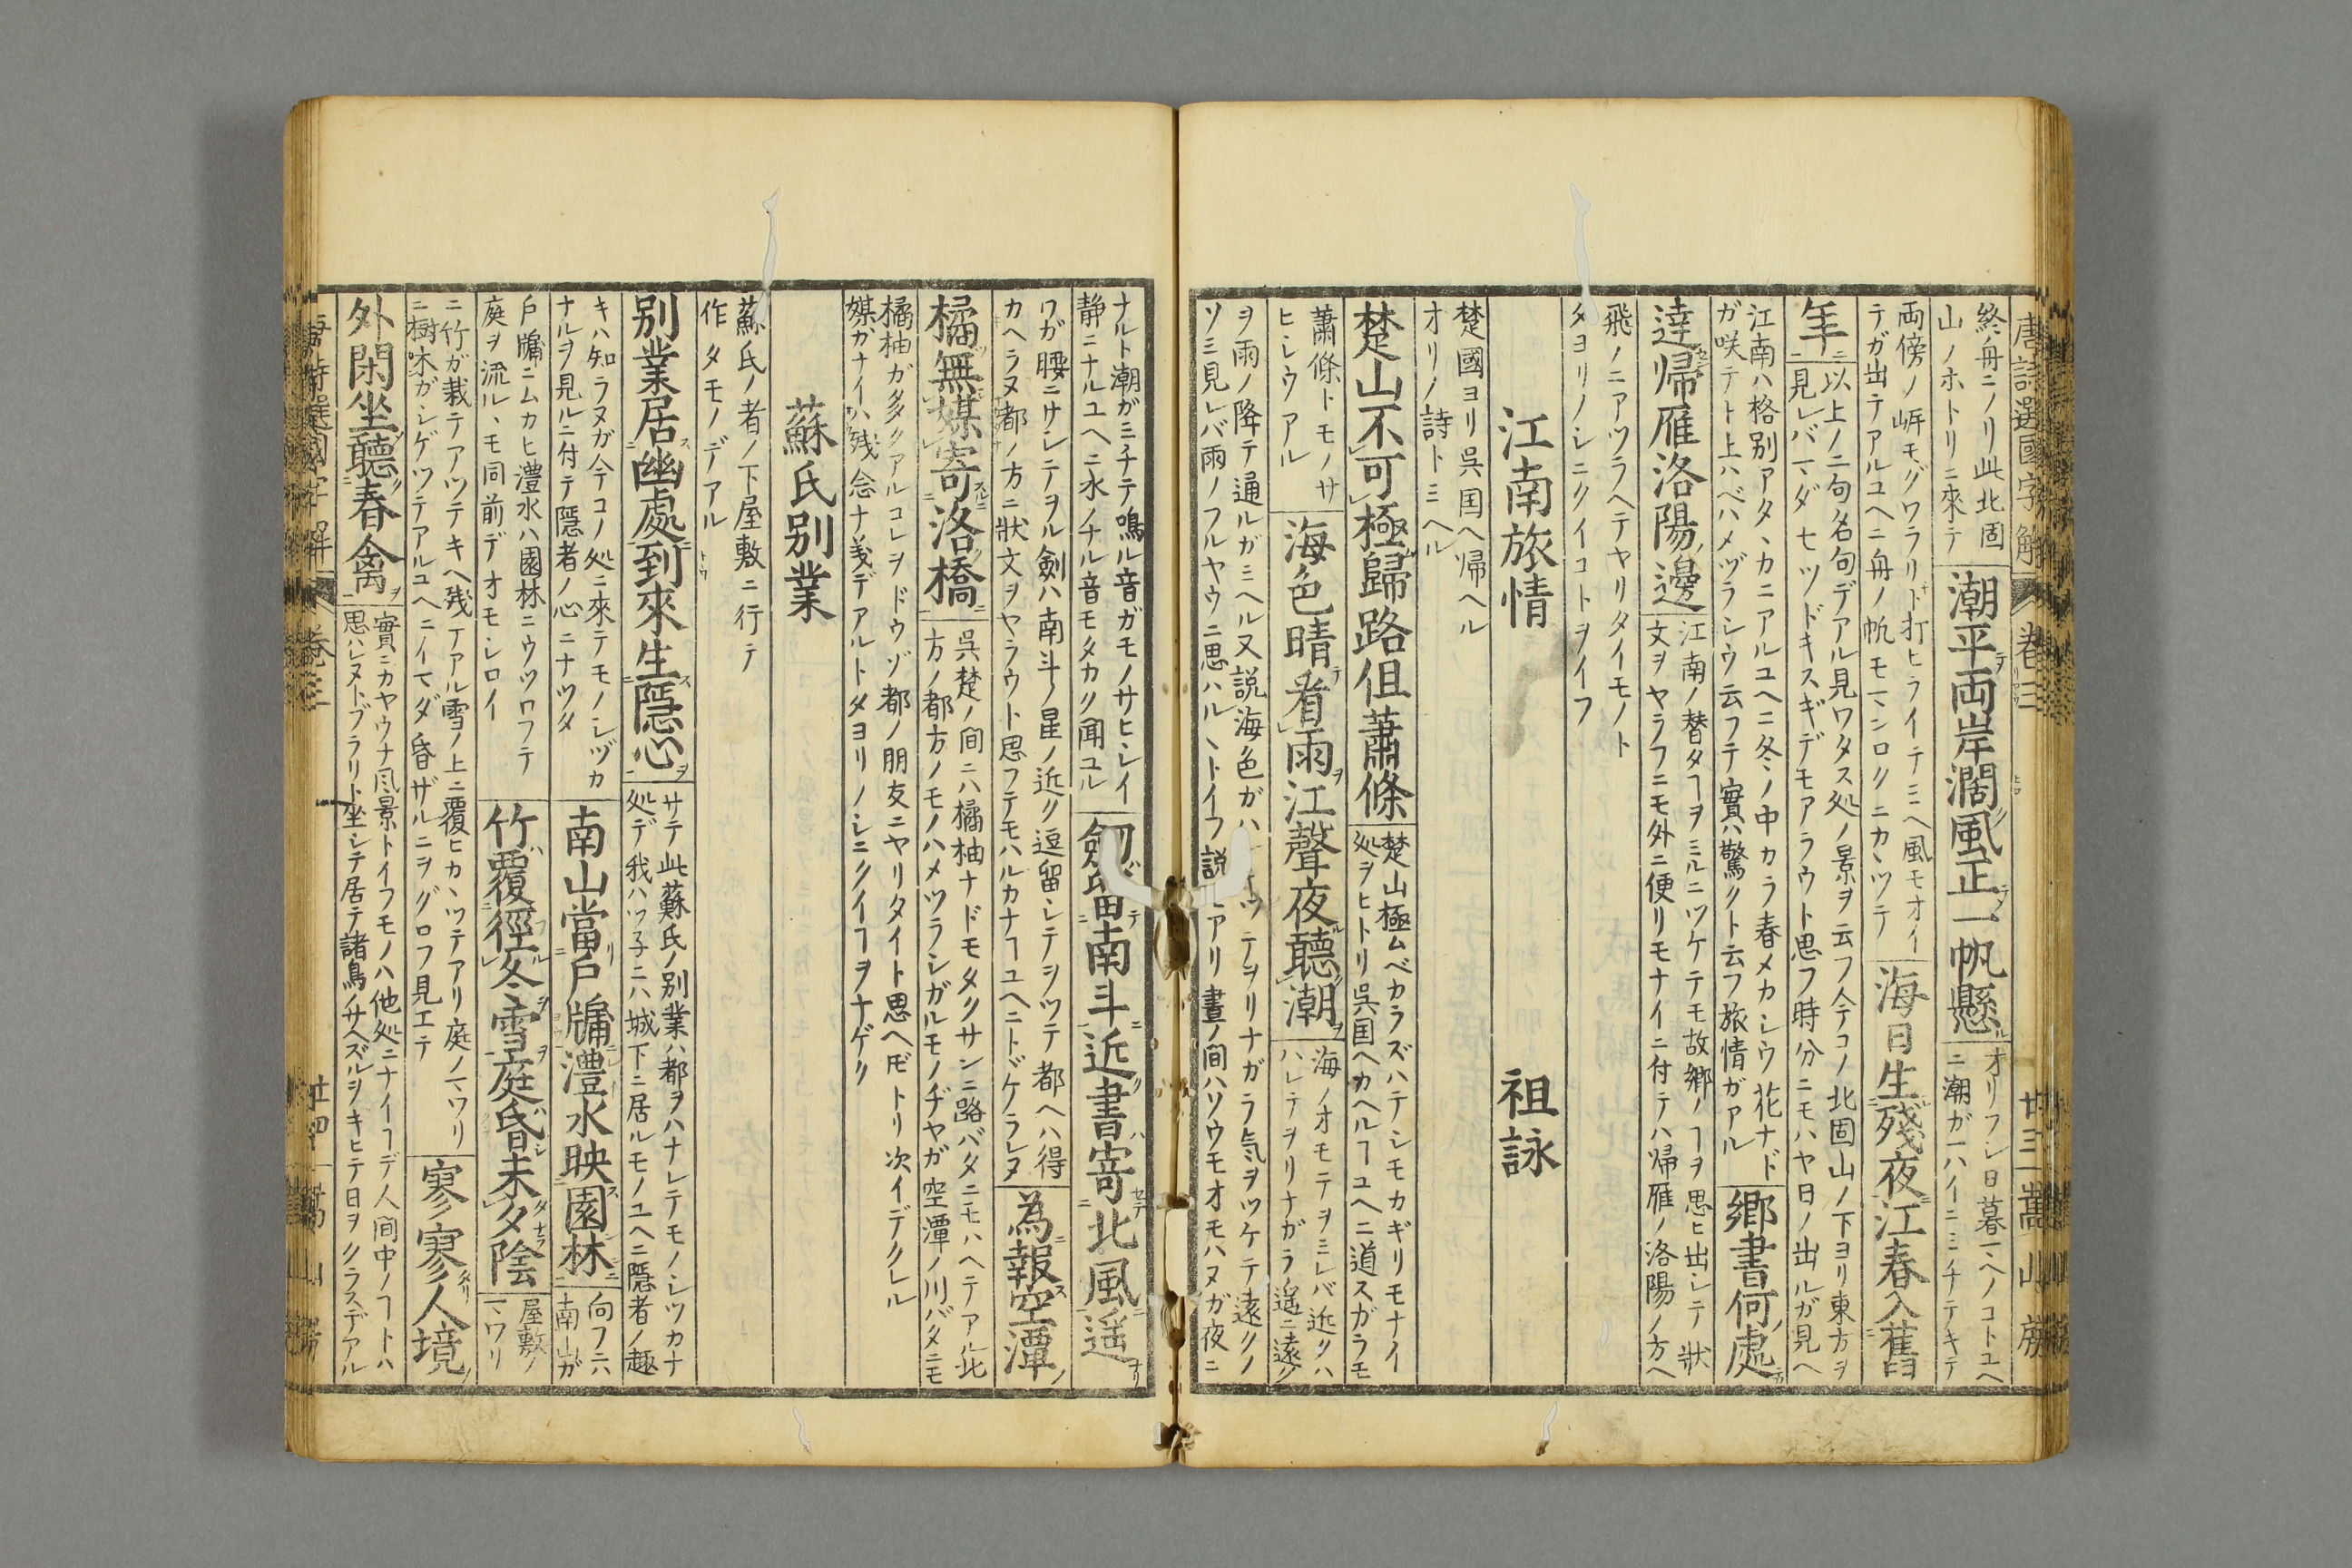 唐詩選國字解 卷三 廿三 嵩山房
終舟ニノリ此北固
山ノホトリニ來テ
潮平両岸濶風正一帆懸
オリフシ日暮マヘノコトユヘ
ニ潮ガ一ハイニミチテキテ
両傍ノ岍モグワラリト打ヒライテミヘ風モオイ
テガ出テアルユヘニ舟ノ帆モマシロクニカヽツテ
海日生殘夜江春入舊
年
以上ノ二句名句デアル見ワタス処ノ景ヲ云フ今コノ北固山ノ下ヨリ東方ヲ
見レバマダ七ツドキスギデモアラウト思フ時分ニモハヤ日ノ出ルガ見ヘ
江南ハ格別アタヽカニアルユヘニ冬ノ中カラ春メカシウ花ナド
ガ咲テト上ハベハメヅラシウ云フテ實ハ驚クト云フ旅情ガアル
鄉書何處
達帰雁洛陽邊
江南ノ替タヿヲミルニツケテモ故郷ノヿヲ思ヒ出シテ狀
文ヲヤラフニモ外ニ便リモナイニ付テハ帰雁ノ洛陽ノ方ヘ
飛ノニアツラヘテヤリタイモノト
タヨリノシニクイコトヲイフ
江南旅情 祖詠
楚國ヨリ呉国ヘ帰ヘル
オリノ詩トミヘル
楚山不可極歸路但蕭條
楚山極ムベカラズハテシモカギリモナイ
処ヲヒトリ呉国ヘカヘルヿユヘニ道スガラモ
蕭條トモノサ
ヒシウアル
海色晴看雨江聲夜聽潮
海ノオモテヲミレバ近クハ
ハレテヲリナガラ遥ニ遠ク
ヲ雨ノ降テ通ルガミヘル又説海色ガハ ツテヲリナガラ気ヲツケテ遠クノ
ソミ見レバ雨ノフルヤウニ思ハルヽトイフ説 アリ晝ノ間ハソウモオモハヌガ夜ニ
ナルト潮ガミチテ鳴ル音ガモノサヒシイ
静ニナルユヘニ水ノチル音モタカク聞ユル
劔留南斗近書寄北風遥
ワガ腰ニサシテヲル劍ハ南斗ノ星ノ近ク逗留シテヲツテ都ヘハ得
カヘラヌ都ノ方ニ狀文ヲヤラウト思フテモハルカナヿユヘニトヾケラレヌ
為報空潭
橘無媒寄洛橋
呉楚ノ間ニハ橘柚ナドモタクサンニ路バタニモハヘテアル此
方ノ都方ノモノハメツラシガルモノヂヤガ空潭ノ川バタニモ
橘柚ガ多クアルコレヲドウゾ都ノ朋友ニヤリタイト思ヘ𪜈トリ次イデクレル
媒カナイハ残念ナ義デアルトタヨリノシニクイヿヲナゲク
蘇氏別業
蘇氏ノ者ノ下屋敷ニ行テ
作タモノデアル
別業居幽處到來生隱心
サテ此蘇氏ノ別業ハ都ヲハナレテモノシツカナ
処デ我ハツ子ニハ城下ニ居ルモノユヘニ隱者ノ趣
キハ知ラヌガ今コノ処ニ來テモノシヅカ
ナルヲ見ルニ付テ隱者ノ心ニナツタ
南山當戸牖灃水映園林
向フニハ
南山ガ
戸牖ニムカヒ灃水ハ園林ニウツロフテ
庭ヲ流ルヽモ同前デオモシロイ
竹覆徑冬雪庭昏未夕陰
屋敷ノ
マワリ
ニ竹ガ栽テアツテキヘ残テアル雪ノ上ニ覆ヒカヽツテアリ庭ノマワリ
ニ樹木ガシゲツテアルユヘニイマダ昏ザルニヲグロフ見エテ
寥寥人境
外閑坐聽春禽
實ニカヤウナ風景トイフモノハ他処ニナイヿデ人間中ノヿトハ
思ハレヌトブラリト坐シテ居テ諸鳥ノサヘズルヲキヒテ日ヲクラスデアル
唐詩選國字解 卷三 廿四 嵩山房